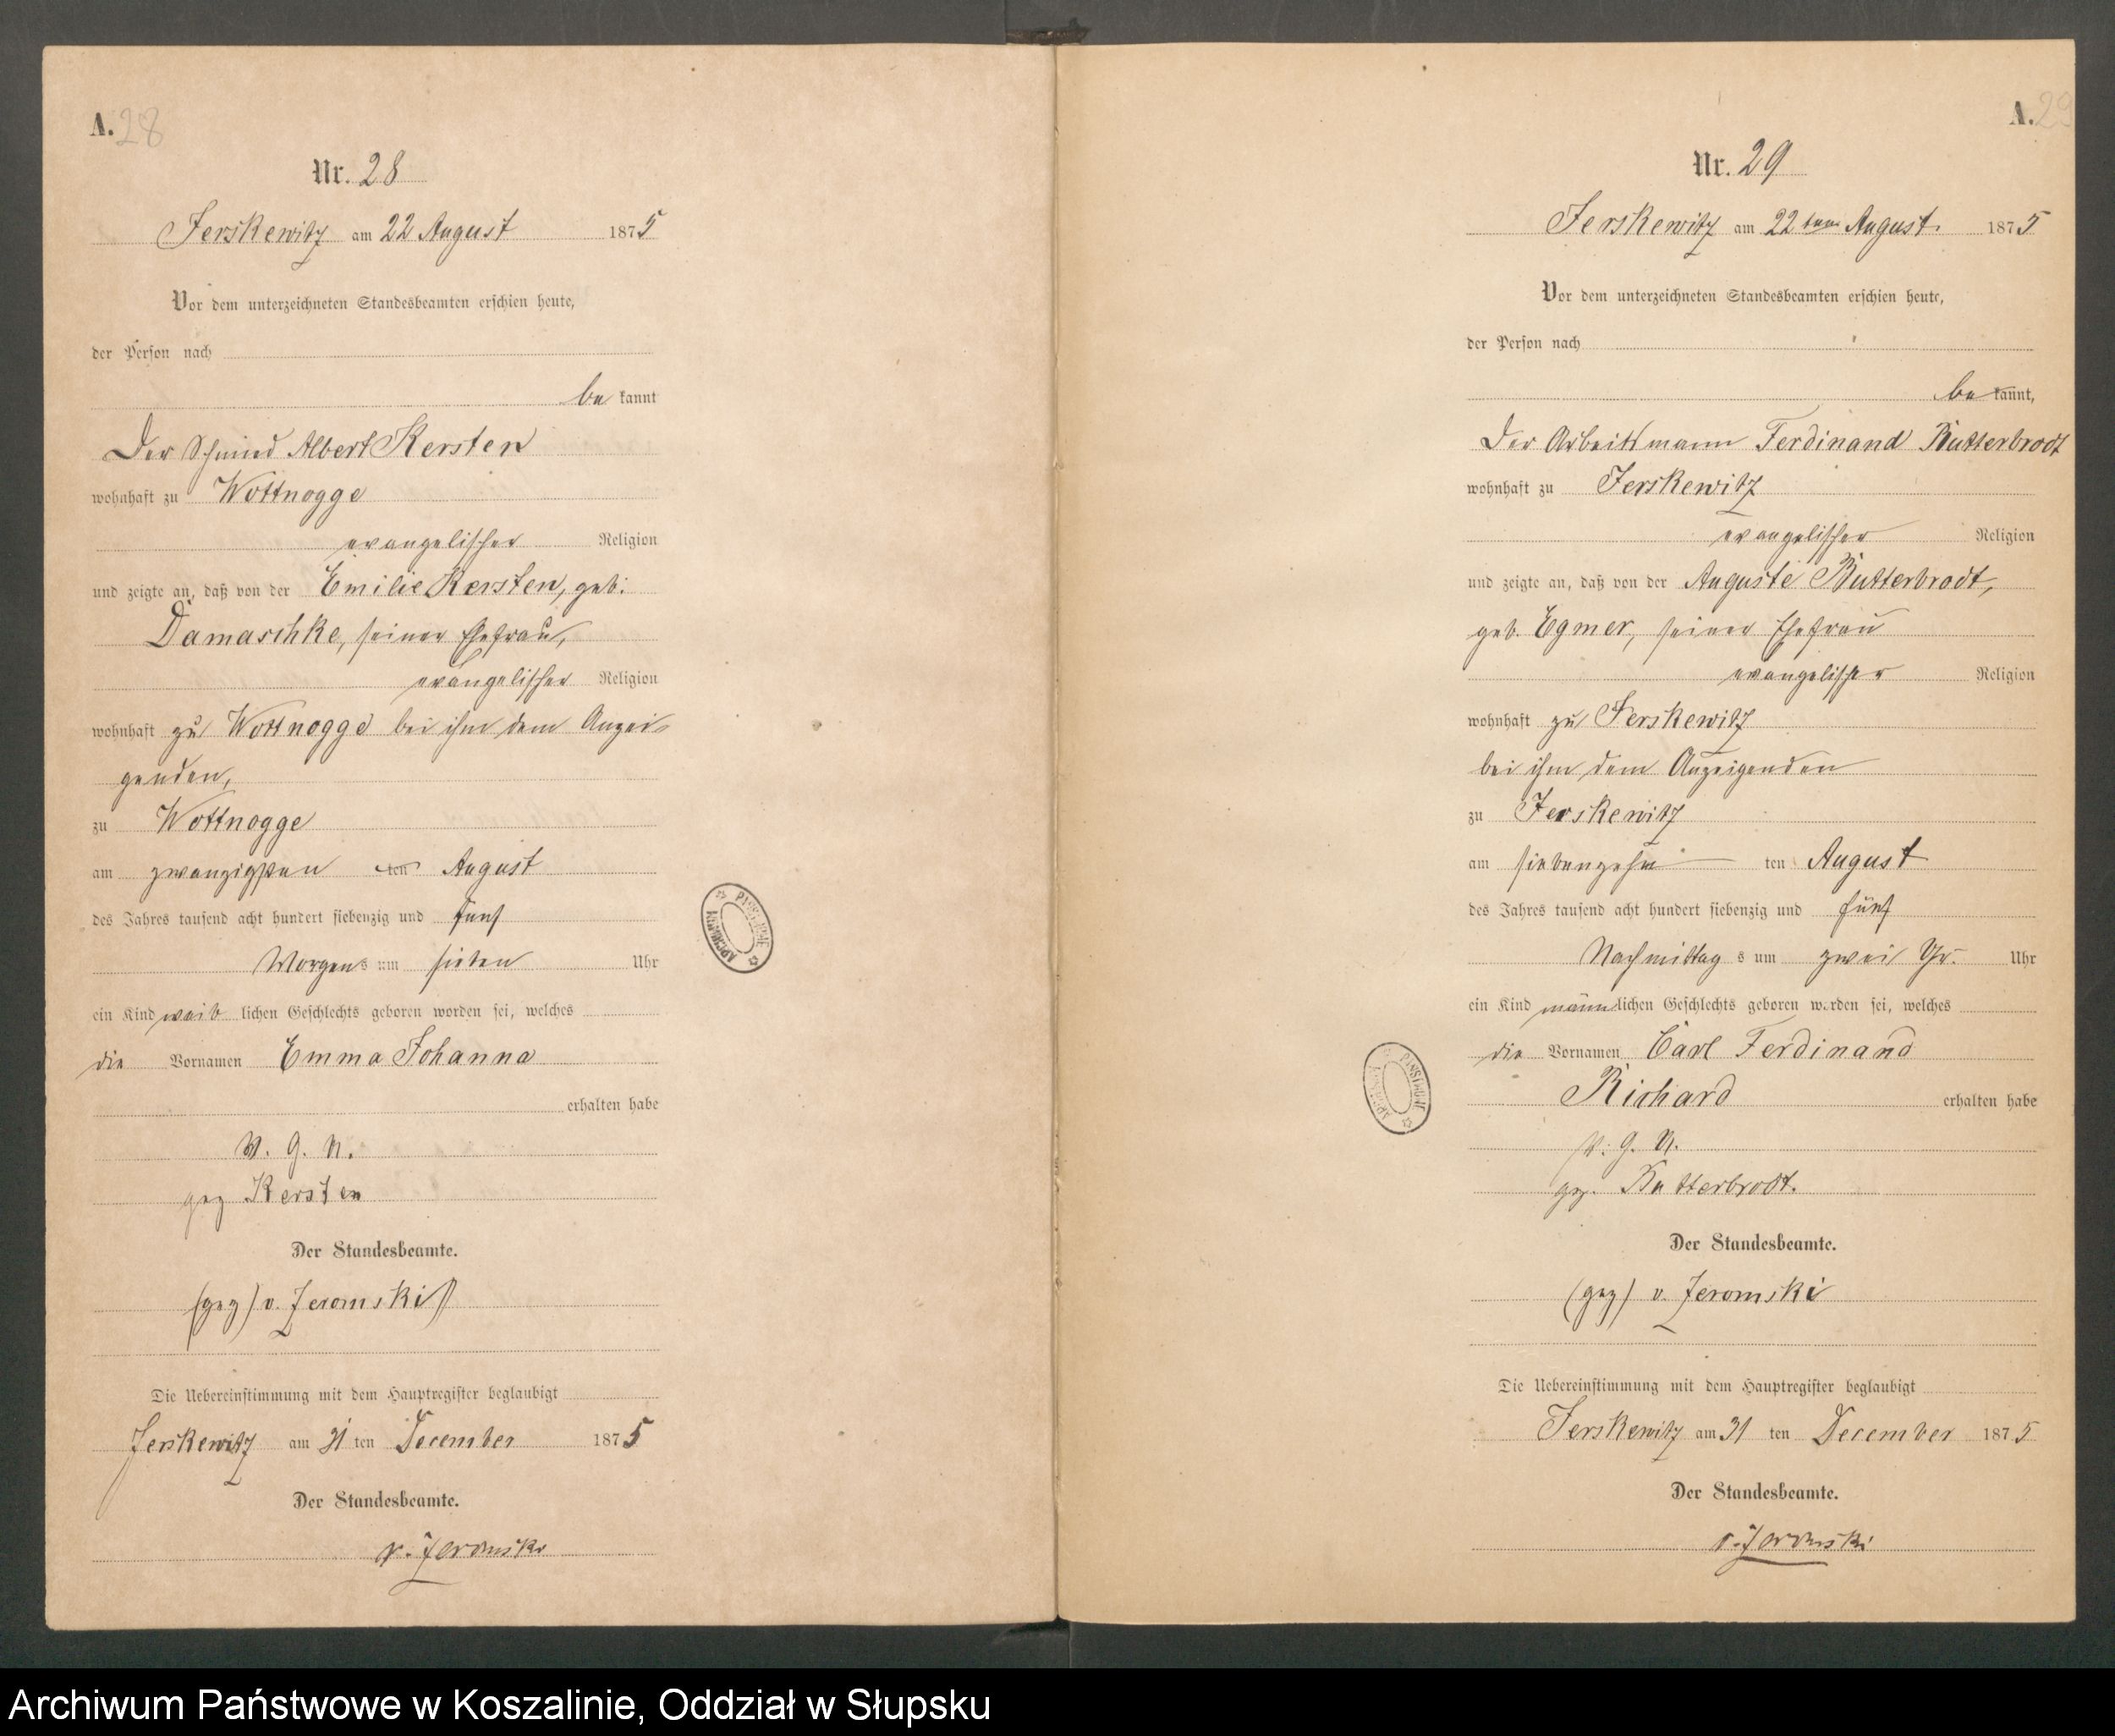 A. 28
Nr. 28
Jerskewitz am 22 August 1875
Vor dem unterzeichneten Standesbeamten erschien heute,
der Person nach
be kannt
Der Schmied Albert Kersten
wohnhaft zu Wottnogge
evangelischer Religion
und zeigte an, daß von der Emilie Kersten, geb:
Damaschke, seiner Ehefrau,
evangelischer Religion
wohnhaft zu Wottnogge bei ihm dem Anzei-
genden,
zu Wottnogge
am zwanzigsten ten August
des Jahres tausend acht hundert siebenzig und fünf
Morgens um sieben Uhr
ein Kind weib lichen Geschlechts geboren worden sei, welches
die Vornamen Emma Johanna
erhalten habe
V. G. U.
gez Kersten
Der Standesbeamte.
(gez) v. Jeromski
Die Uebereinstimmung mit dem Hauptregister beglaubigt
Jerskewitz am 31 ten December 1875
Der Standesbeamte.
v. Jeromski
A. 29
Nr. 29
Jerskewitz am 22 ten August. 1875
Vor dem unterzeichneten Standesbeamten erschien heute,
der Person nach
be kannt,
Der Arbeitsmann Ferdinand Butterbrodt
wohnhaft zu Jerskewitz
evangelischer Religion
und zeigte an, daß von der Auguste Butterbrodt,
geb. Egmer, seiner Ehefrau
evangelischer Religion
wohnhaft zu Jerskewitz
bei ihm dem Anzeigenden
zu Jerskewitz
am siebenzehn ten August
des Jahres tausend acht hundert siebenzig und fünf
Nachmittag s um zwei Uhr
ein Kind männlichen Geschlechts geboren worden sei, welches
die Vornamen Carl Ferdinand
Richard erhalten habe
V. G. U.
gez. Butterbrodt.
Der Standesbeamte.
(gez) v. Jeromski
Die Uebereinstimmung mit dem Hauptregister beglaubigt
Jerskewitz am 31 ten December 1875
Der Standesbeamte.
v. Jeromski
Archiwum Państwowe w Koszalinie, Oddział w Słupsku